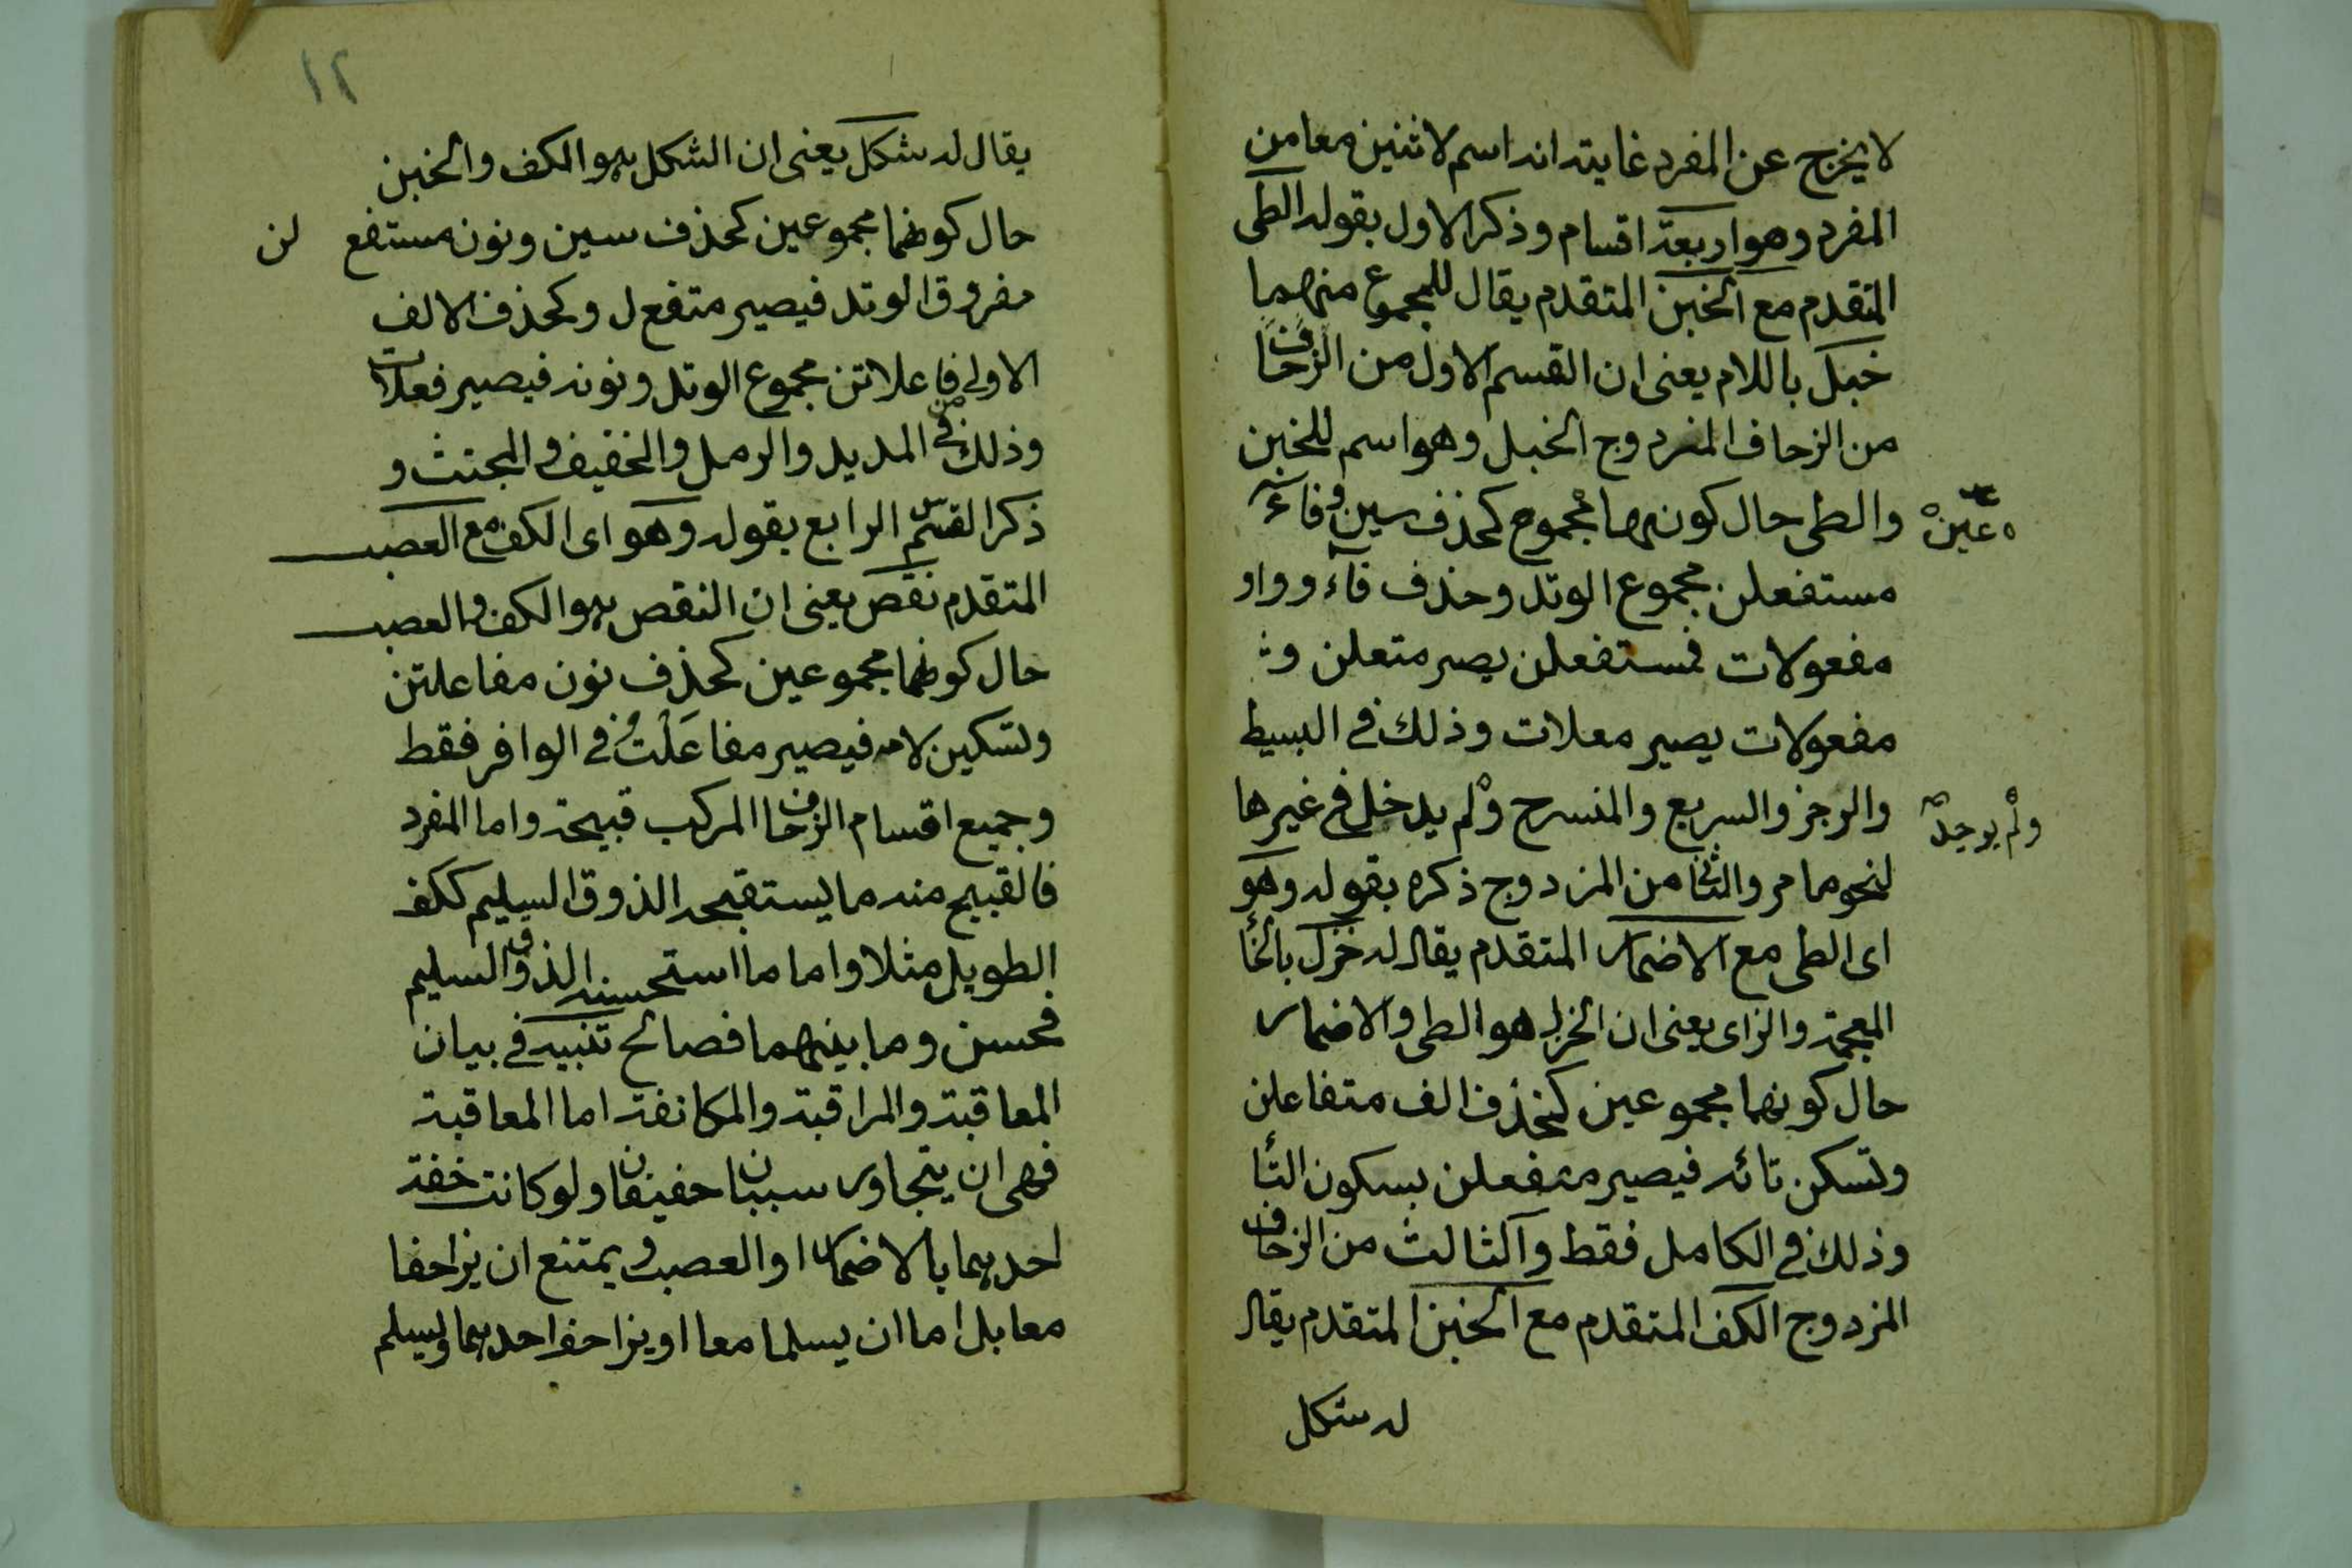 لا يخرج عن المفرد غايته انه اسم لاثنين معا من
المفرد وهو اربعة اقسام وذكر الاول بقوله الطى
المتقدم مع الخبن المتقدم يقال للمجموع منهما
خبل باللام يعنى ان القسم الاول من الزحاف
من الزحاف المزدوج الخبل وهو اسم للخبن
والطى حال كونهما مجموع كحذف سين وفاء
عين
مستفعلن مجموع الوتد وحذف فآء وواو
مفعولات فمستفعلن يصير متعلن و
مفعولات يصير معلات وذلك فى البسيط
والرجز والسريع والمنسرح ولم يدخل فى غيرها
ولم يوجد
لنحو ما مر والثانى من المزدوج ذكره بقوله وهو
اى الطى مع الاضمار المتقدم يقال له خزل بالخاء
المعجمة والزاى يعنى ان الخزل هو الطى والاضمار
حال كونهما مجموعين كحذف الف متفاعلن
وتسكن تائه فيصير متفعلن بسكون التاء
وذلك فى الكامل فقط والثالث من الزحاف
المزدوج الكف المتقدم مع الخبن المتقدم يقال
له شكل
١٢
يقال له شكل يعنى ان الشكل هو الكف والخبن
حال كونهما مجموعين كحذف سين ونون مستفع لن
مفروق الوتد فيصير متفع ل وكحذف الالف
الاولى من فاعلاتن مجموع الوتد ونونه فيصير فعلات
وذلك فى المديد والرمل والخفيف والمجتث و
ذكر القسم الرابع بقوله وهو اى الكف مع العصب
المتقدم نقص يعنى ان النقص هو الكف والعصب
حال كونهما مجموعين كحذف نون مفاعلتن
وتسكين لامه فيصير مفاعَلْتُ فى الوافر فقط
وجميع اقسام الزحاف المركب قبيحة واما المفرد
فالقبيح منه ما يستقبحه الذوق السليم ككف
الطويل مثلا واما ما استحسنه الذوق السليم
فحسن وما بينهما فصالح تنبيه فى بيان
المعاقبة والمراقبة والمكانفة اما المعاقبة
فهى ان يتجاور سببان خفيفان ولو كانت خفة
احديهما بالاضمار او العصب ويمتنع ان يزاحفا
معا بل اما ان يسلما معا او يزاحف احديهما ويسلم